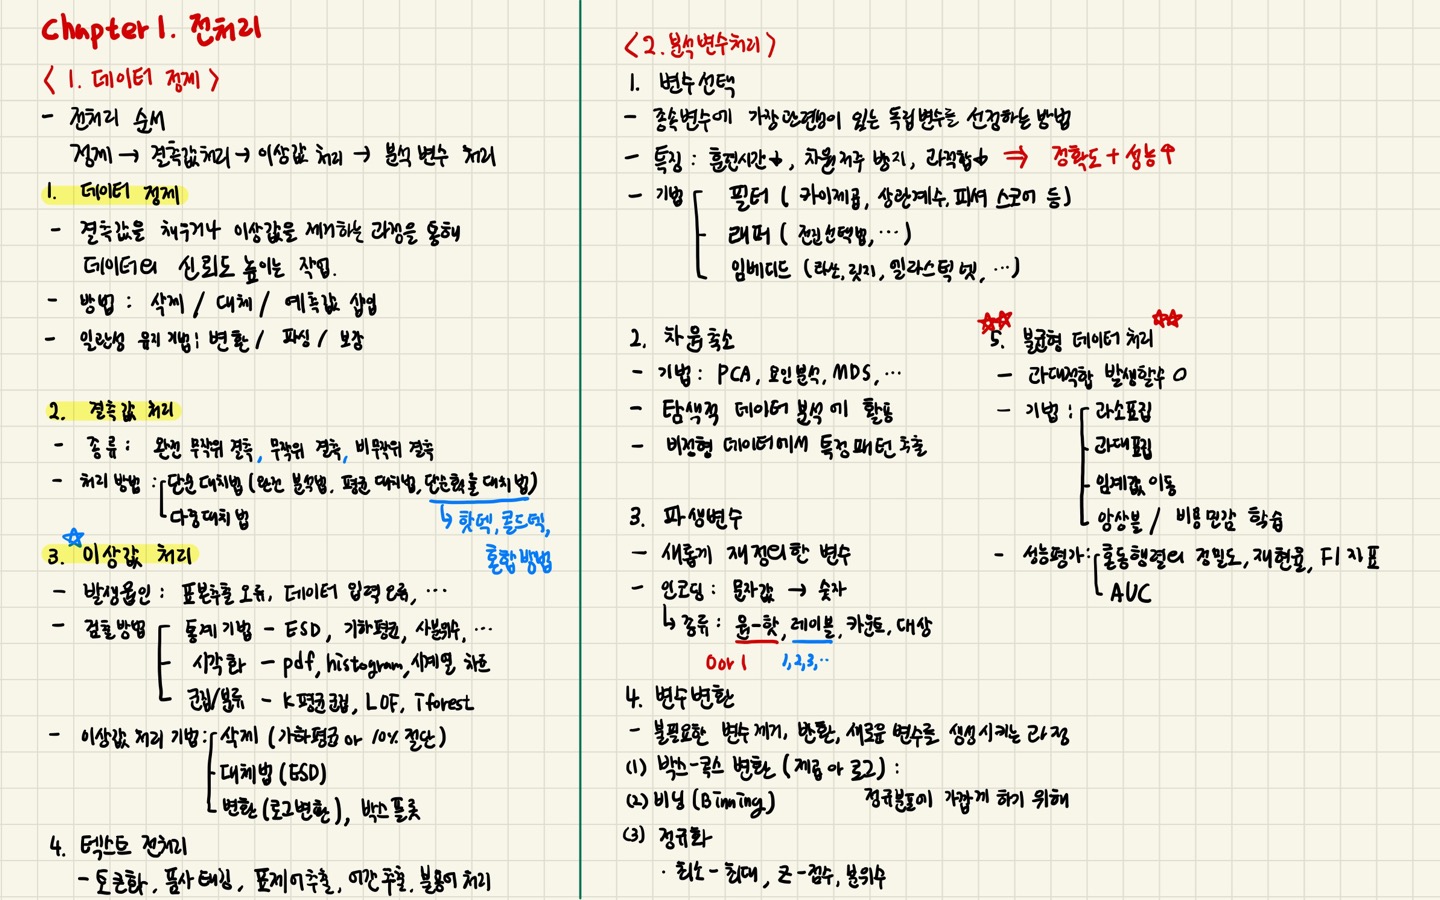 Chapter 1. 전처리
< 1. 데이터 정제 >
- 전처리 순서
정제 → 결측값처리 → 이상값 처리 → 분석 변수 처리
1. 데이터 정제
- 결측값을 채우거나 이상값을 제거하는 과정을 통해
데이터의 신뢰도 높이는 작업.
- 방법 : 삭제 / 대체 / 예측값 삽입
- 일관성 유지 기법 : 변환 / 파싱 / 보강
2. 결측값 처리
- 종류 : 완전 무작위 결측, 무작위 결측, 비무작위 결측
- 처리 방법 : 단순 대치법 (완전 분석법, 평균 대치법, 단순확률 대치법)
↳ 핫덱, 콜드덱,
혼합방법
다중대치법
☆
3. 이상값 처리
- 발생요인 : 표본추출 오류, 데이터 입력 오류, ...
- 검출방법 통계기법 - ESD, 기하평균, 사분위수, ...
시각화 - pdf, histogram, 시계열 차트
군집/분류 - K평균군집, LOF, iforest
- 이상값 처리 기법 : 삭제 (기하평균 or 10% 절단)
대체법 (ESD)
변환 (로그변환), 박스플롯
4. 텍스트 전처리
- 토큰화, 품사태깅, 표제어추출, 어간추출, 불용어 처리
< 2. 분석변수처리 >
1. 변수선택
- 종속변수에 가장 관련성이 있는 독립변수를 선정하는 방법
- 특징 : 훈련시간↓, 차원저주 방지, 과적합↓ ⇒ 정확도 + 성능↑
- 기법 필터 ( 카이제곱, 상관계수, 피셔 스코어 등)
래퍼 ( 전진선택법, ...)
임베디드 (라쏘, 릿지, 엘라스틱넷, ...)
2. 차원축소
- 기법 : PCA, 요인분석, MDS, ...
- 탐색적 데이터 분석에 활용
- 비정형 데이터에서 특정패턴 추출
3. 파생변수
- 새롭게 재정의한 변수
- 인코딩 : 문자값 → 숫자
↳ 종류 : 원-핫, 레이블, 카운트, 대상
0 or 1 1,2,3,..
4. 변수변환
- 불필요한 변수 제거, 반환, 새로운 변수를 생성시키는 과정
(1) 박스-콕스 변환 (제곱 아 로그) :
정규분포에 가깝게 하기 위해
(2) 비닝 (Binning)
(3) 정규화
· 최소-최대, Z-점수, 분위수
☆☆ ☆☆
5. 불균형 데이터 처리
- 과대적합 발생할수 O
- 기법 : 과소표집
과대표집
임계값 이동
앙상블 / 비용민감 학습
- 성능평가 : 혼동행렬의 정밀도, 재현율, F1 지표
AUC